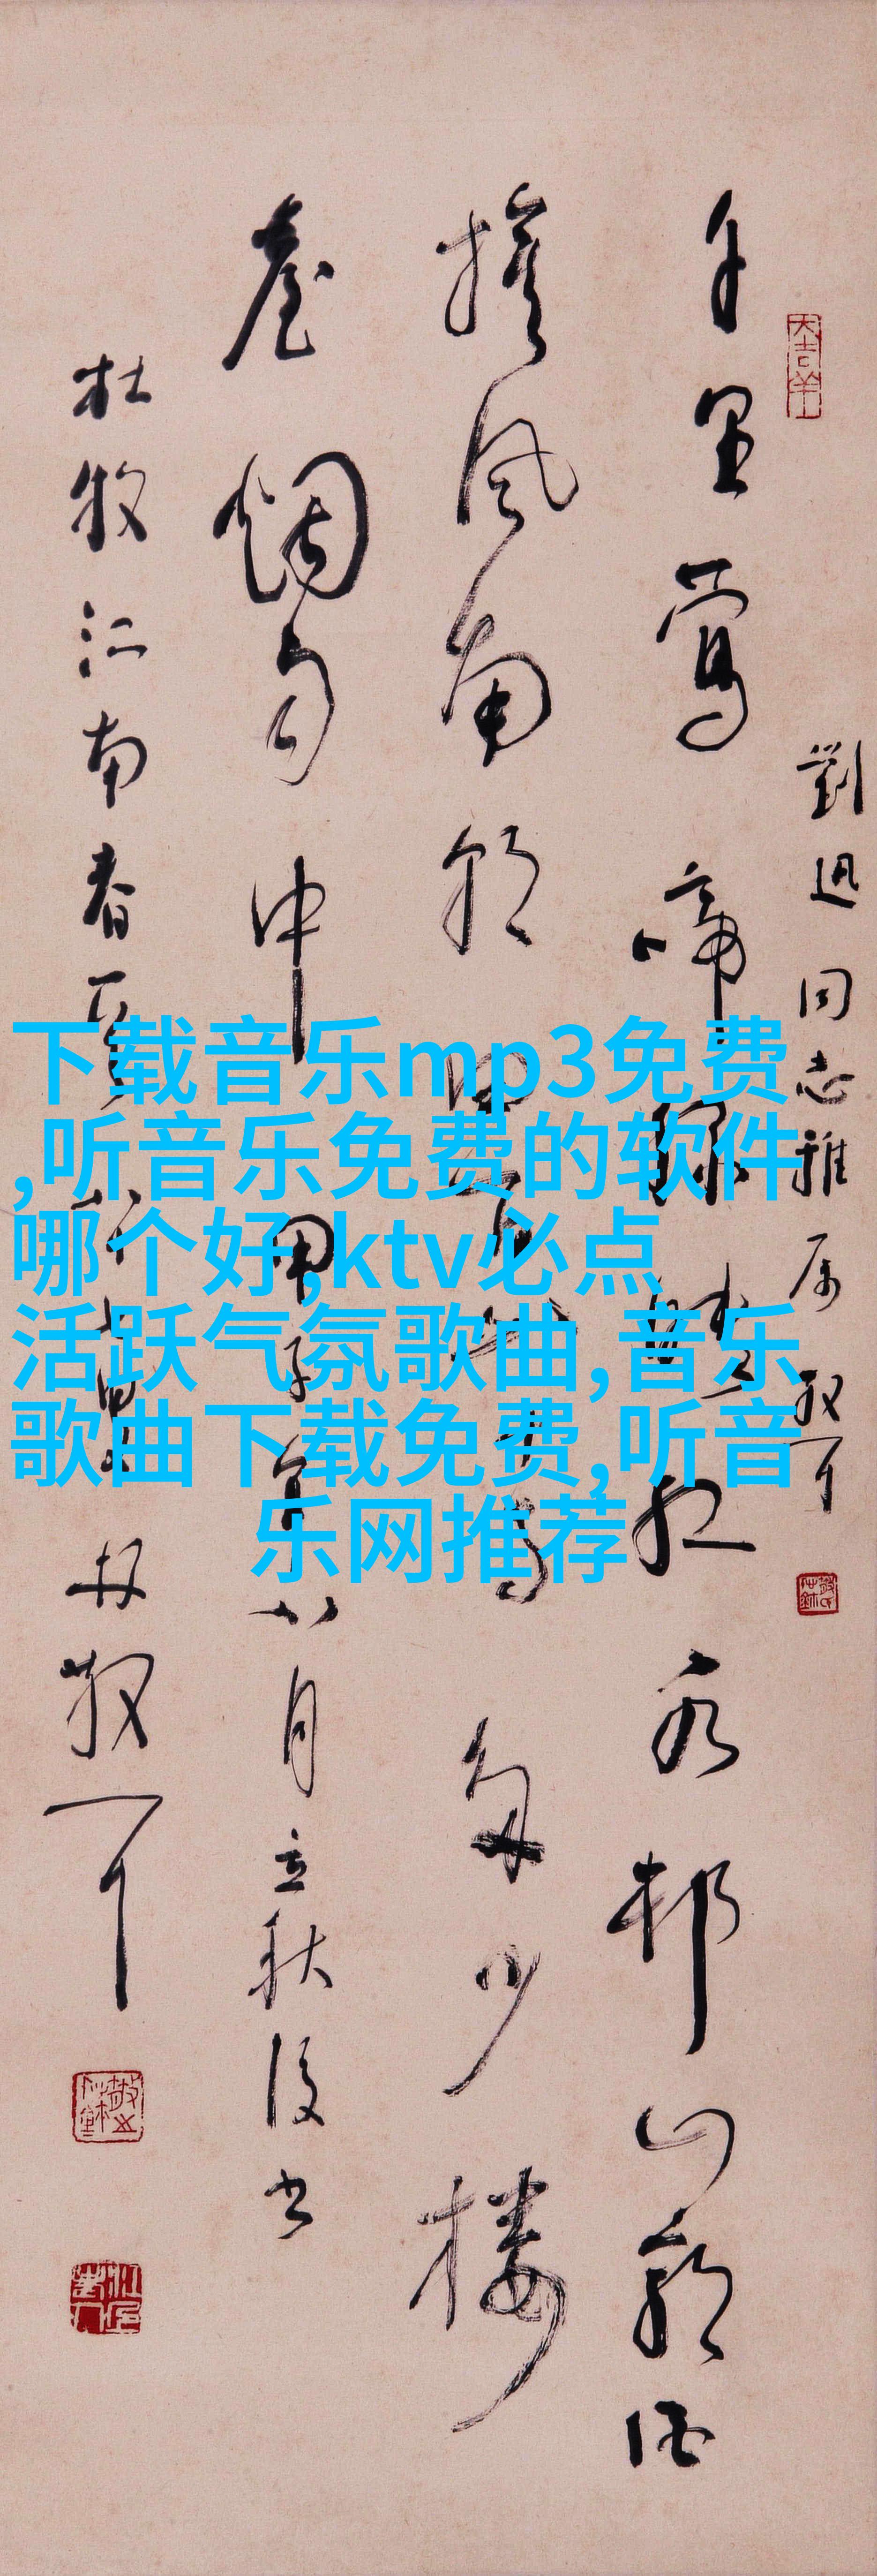 劉迅同志雅属 散耳
千里莺啼绿映红水邨山郭酒
旗风南朝四百八十寺多少楼
臺烟雨中 甲子年八月立秋後书
杜牧江南春
林散耳
下载音乐mp3免费
,听音乐免费的软件
哪个好,ktv必点
活跃气氛歌曲,音乐
歌曲下载免费,听音
乐网推荐